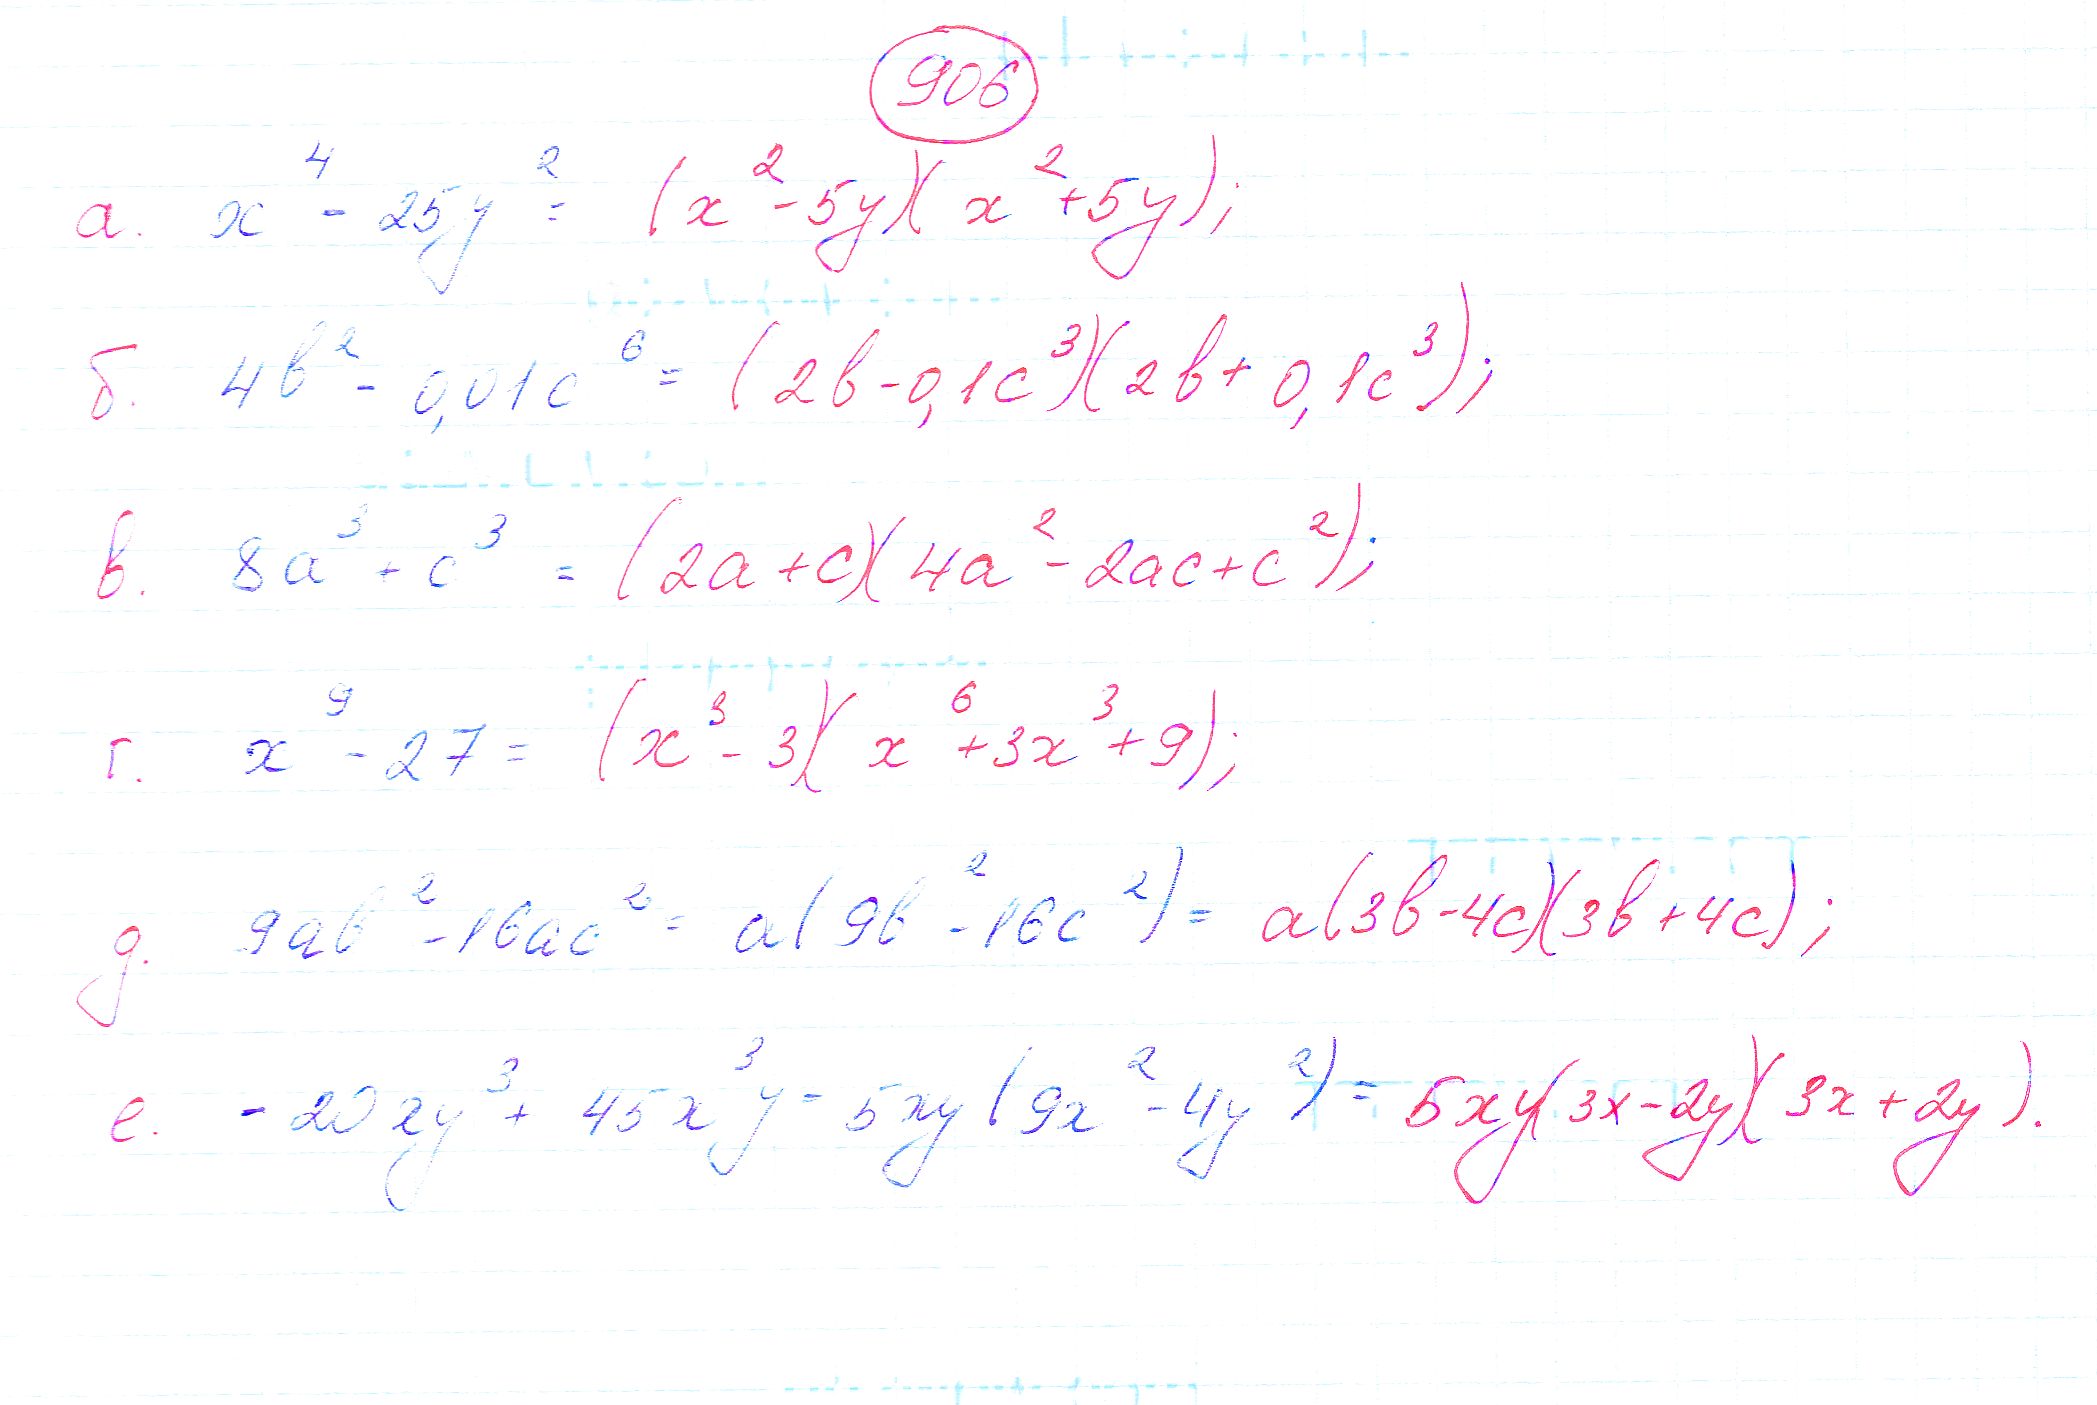 906
а. x⁴ - 25y² = (x² - 5y)(x² + 5y);
б. 4b² - 0,01c⁶ = (2b - 0,1c³)(2b + 0,1c³);
в. 8a³ + c³ = (2a + c)(4a² - 2ac + c²);
г. x⁹ - 27 = (x³ - 3)(x⁶ + 3x³ + 9);
д. 9ab² - 16ac² = a(9b² - 16c²) = a(3b - 4c)(3b + 4c);
е. - 20xy³ + 45x³y = 5xy(9x² - 4y²) = 5xy(3x - 2y)(3x + 2y).